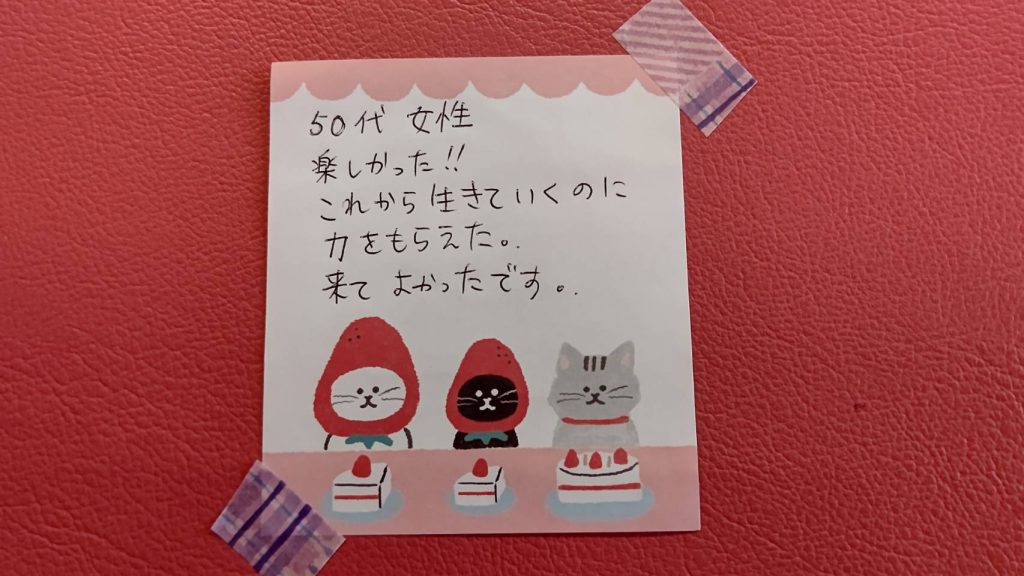 50代 女性
楽しかった!!
これから生きていくのに
力をもらえた。
来て よかったです。